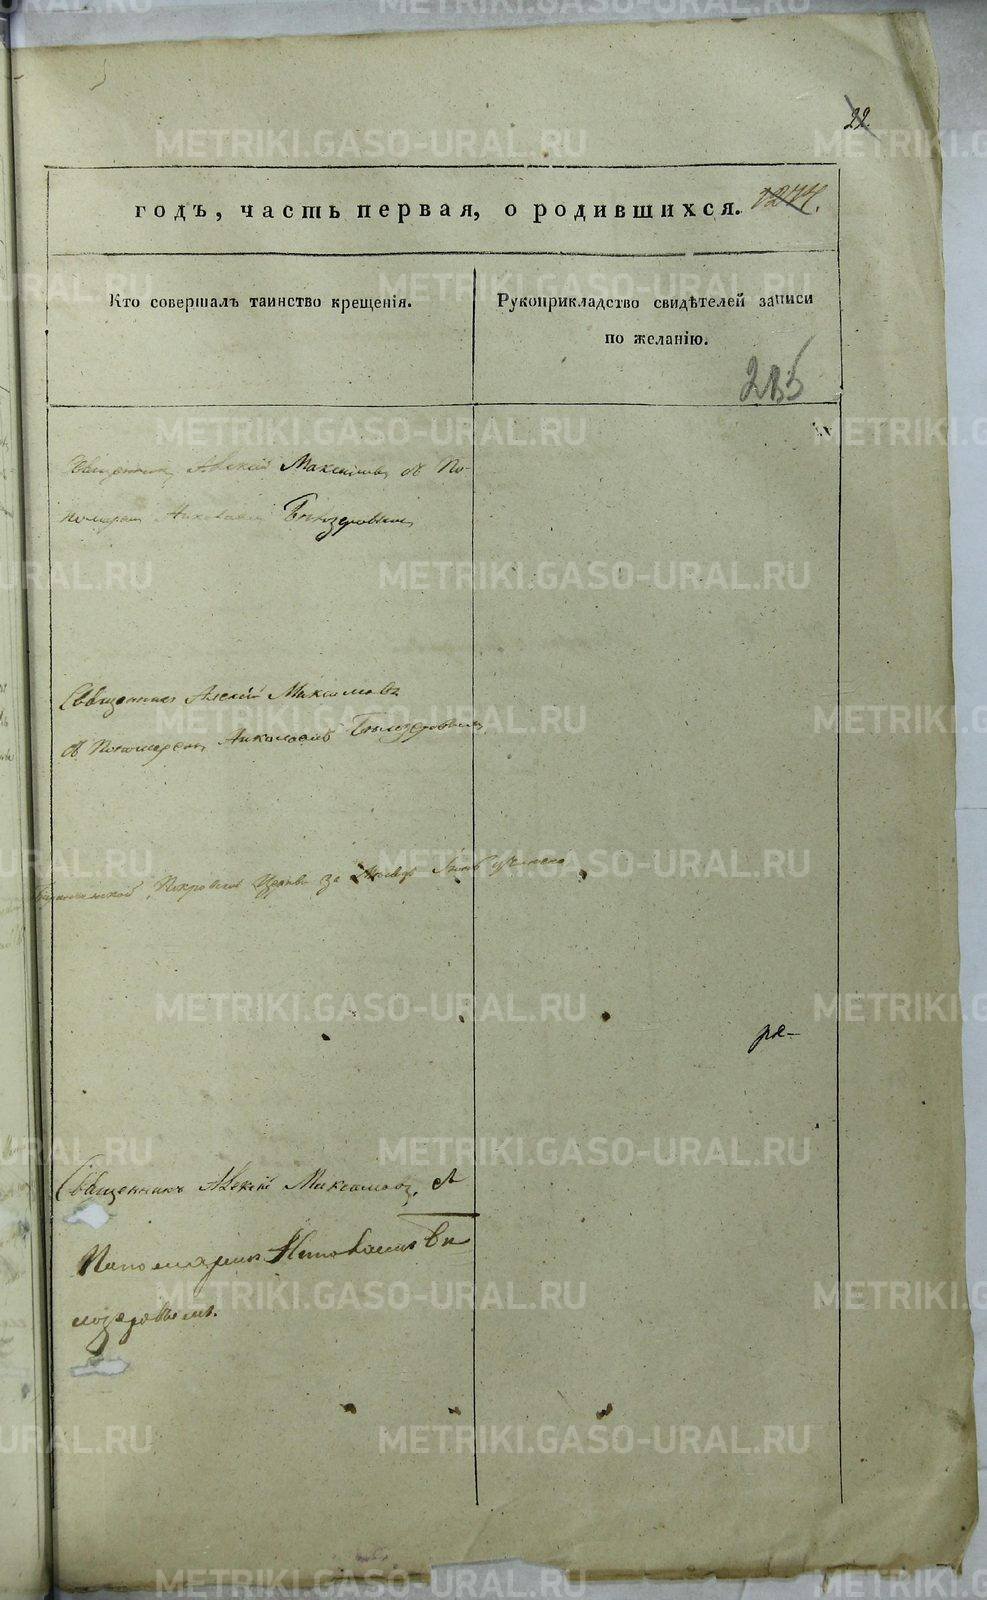 22.
годъ, часть первая, о родившихся. 1274.
Кто совершалъ таинство крещенія.
Рукоприкладство свидѣтелей записи
по желанію.
215
Священникъ Алексій Максимовъ съ По-
номаремъ Николаемъ Бѣлозеровымъ
Священникъ Алексій Максимовъ
съ Пономаремъ Николаемъ Бѣлозеровымъ
Покровской Церкви за
ре-
Священникъ Алексій Максимовъ, съ
Пономаремъ Николаемъ Бѣ
лозеровымъ.
METRIKI.GASO-URAL.RU